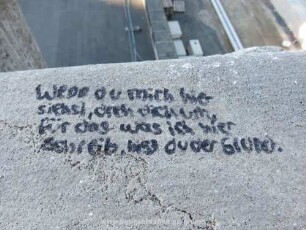 Wenn du mich hier
siehst, dreh dich um,
für das was ich hier
schreib, bist du der GRUND.